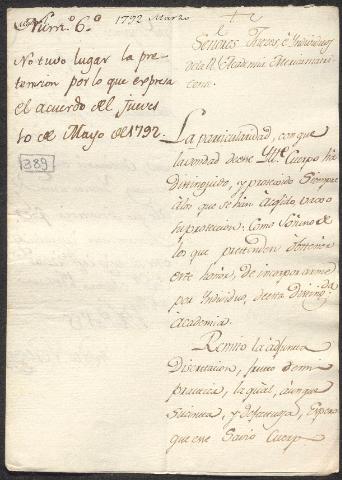 Num.º 6.º
1792 Marzo
No tuvo lugar la pre-
tension por lo que expresa
el acuerdo del Jueves
10 de Mayo de 1792.
389
Señores Jueces, è Individuos
de la R.l Academia
La particularidad, con que
la verdad de este Ill.e Cuerpo ha
distinguido, y protegido siempre
à los que se han acogido
su proteccion: Como
los que pretenden obtener
este honor, de incorporarme
por Individuo, de esta disting.da
Academia.
Remito la adjunta
Disertacion, fruto de mi
practica, la qual, aunque
sucinta, y defectuosa, espero
que este Savio Cuerp